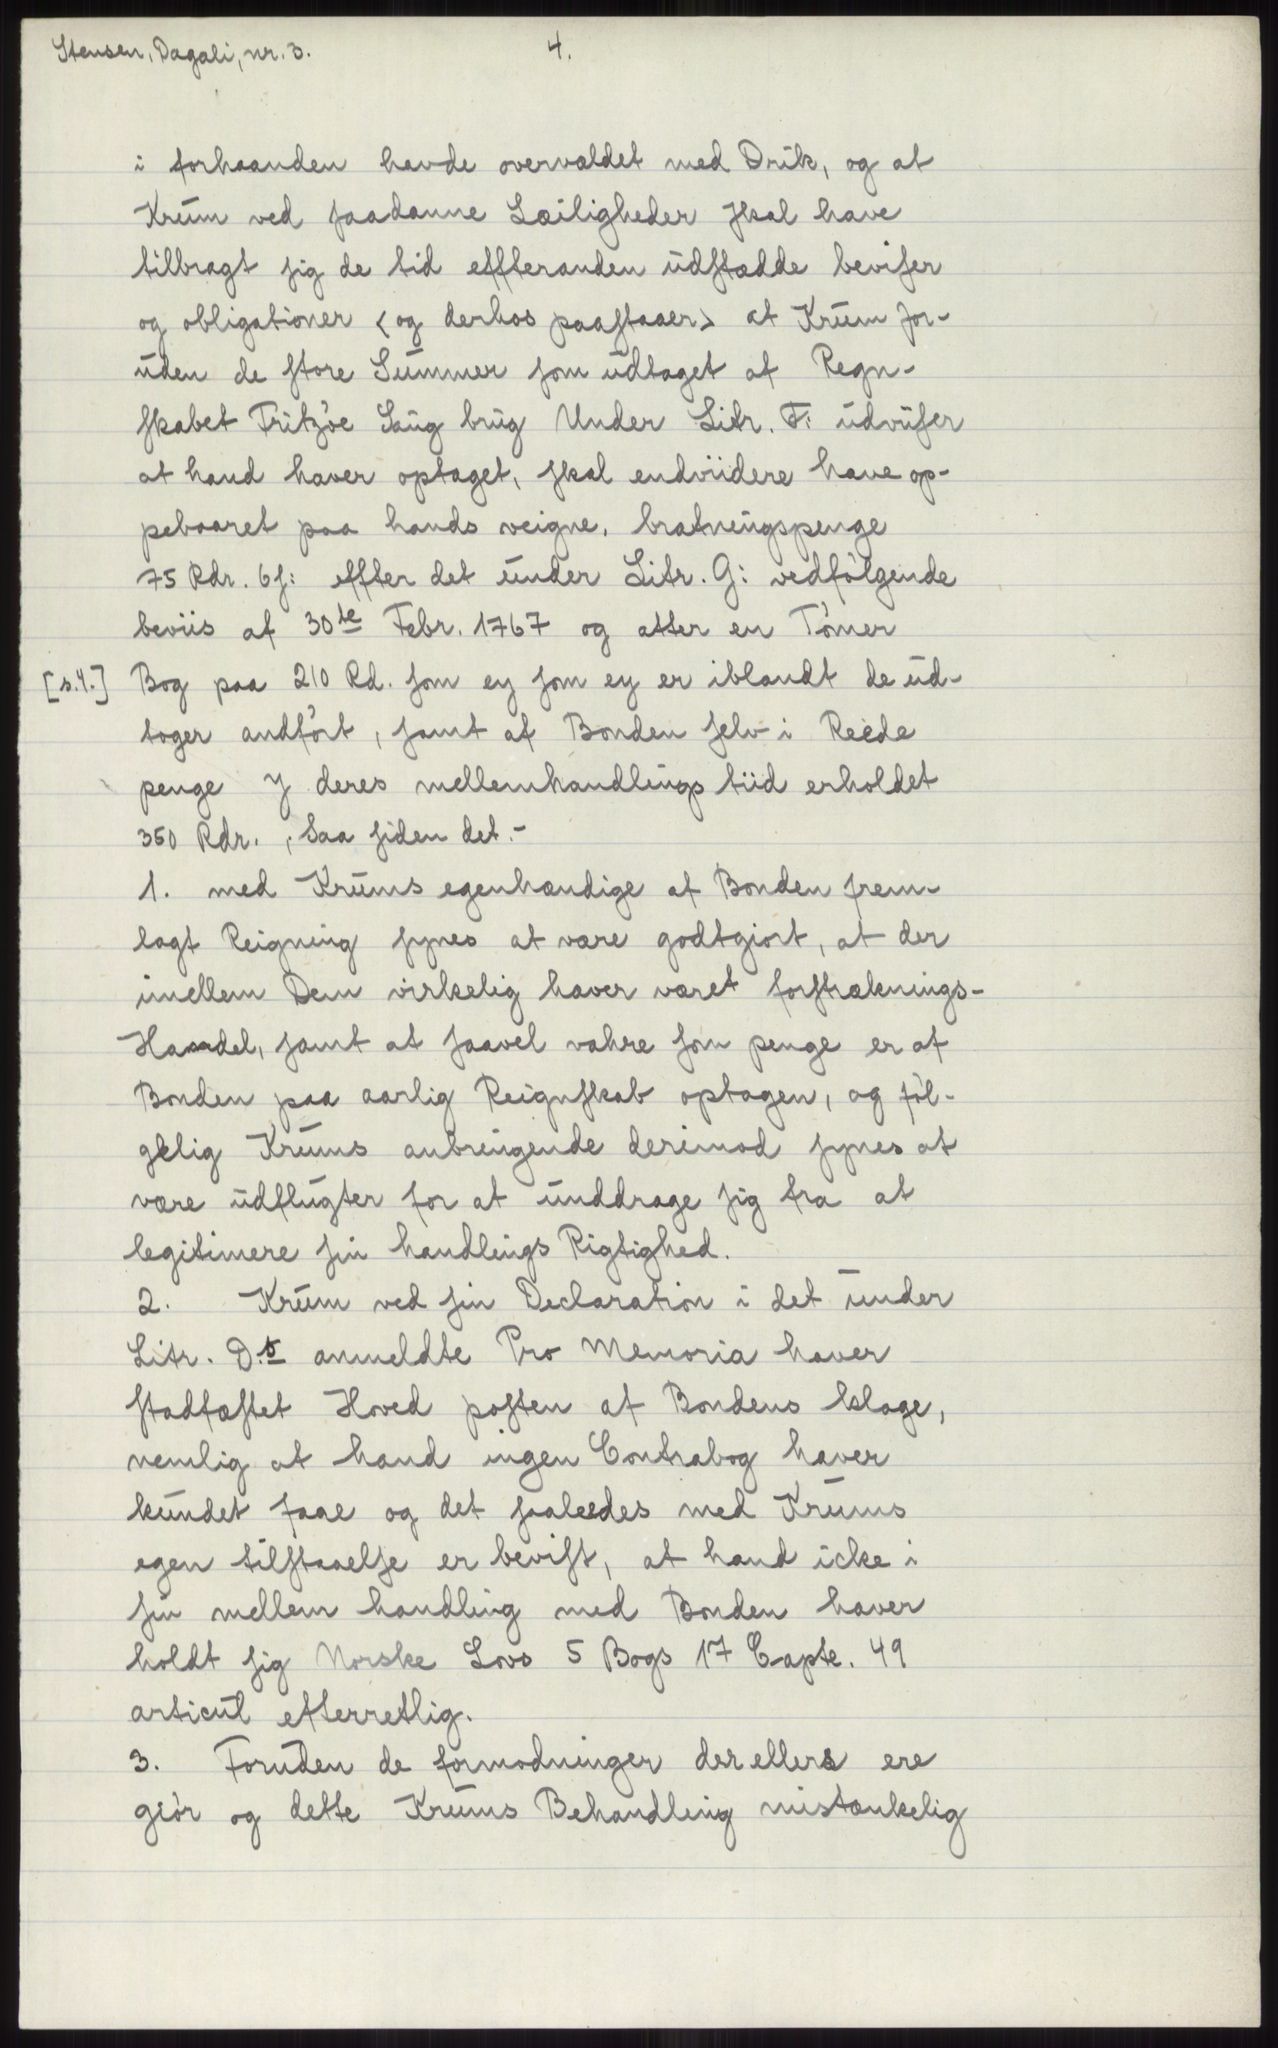 Stensen, Dagali, nr. 3.
4.
i forhaanden havde overvældet med Drik, og at
Krum ved saadanne Læiligheder skal have
tilbragt sig de tid effteranden udstædde beviser
og obligationer <og derhos paastaaer> at Krum for-
uden de store Summer som udtaget af Regn-
skabet Fritzöe Saug brug Under Litr. F: udviiser
at hand haver optaget, skal endviidere have op-
pebaaret paa hands veigne, bratningspenge
75 Rdr. 6 s: effter det under Litr. G: vedfölgende
beviis af 30te Febr. 1767 og atter en Tömer
[s.4.] Bog paa 210 Rd. som ey som ey er iblandt de ud-
toger andfört, samt af Bonden selv i Reede
penge J deres mellemhandlings tiid erholdet
350 Rdr. , Saa siden det.-
1. med Krums egenhændige af Bonden frem-
lagt Reigning synes at være godtgiort, at der
imellem Dem virkelig haver været forstræknings-
Handel, samt at saavel vahre som penge er af
Bonden paa aarlig Reignskab optagen, og föl-
gelig Krums anbringende derimod synes at
være udflugter for at unddrage sig fra at
legitimere sin handlings Rigtighed.
2. Krum ved sin Declaration i det under
Litr. D: anmeldte Pro Memoria haver
stadfæstet Hoved posten af Bondens klage,
nemlig at hand ingen Contrabog haver
kundet faae og det saaledes med Krums
egen tilstaaelse er bevist, at hand icke i
sin mellem handling med Bonden haver
holdt sig Norske Lovs 5 Bogs 17 Capte. 49
articul efterretlig.
3. Foruden de formodninger der ellers ere
giör og dette Krums Behandling mistænkelig